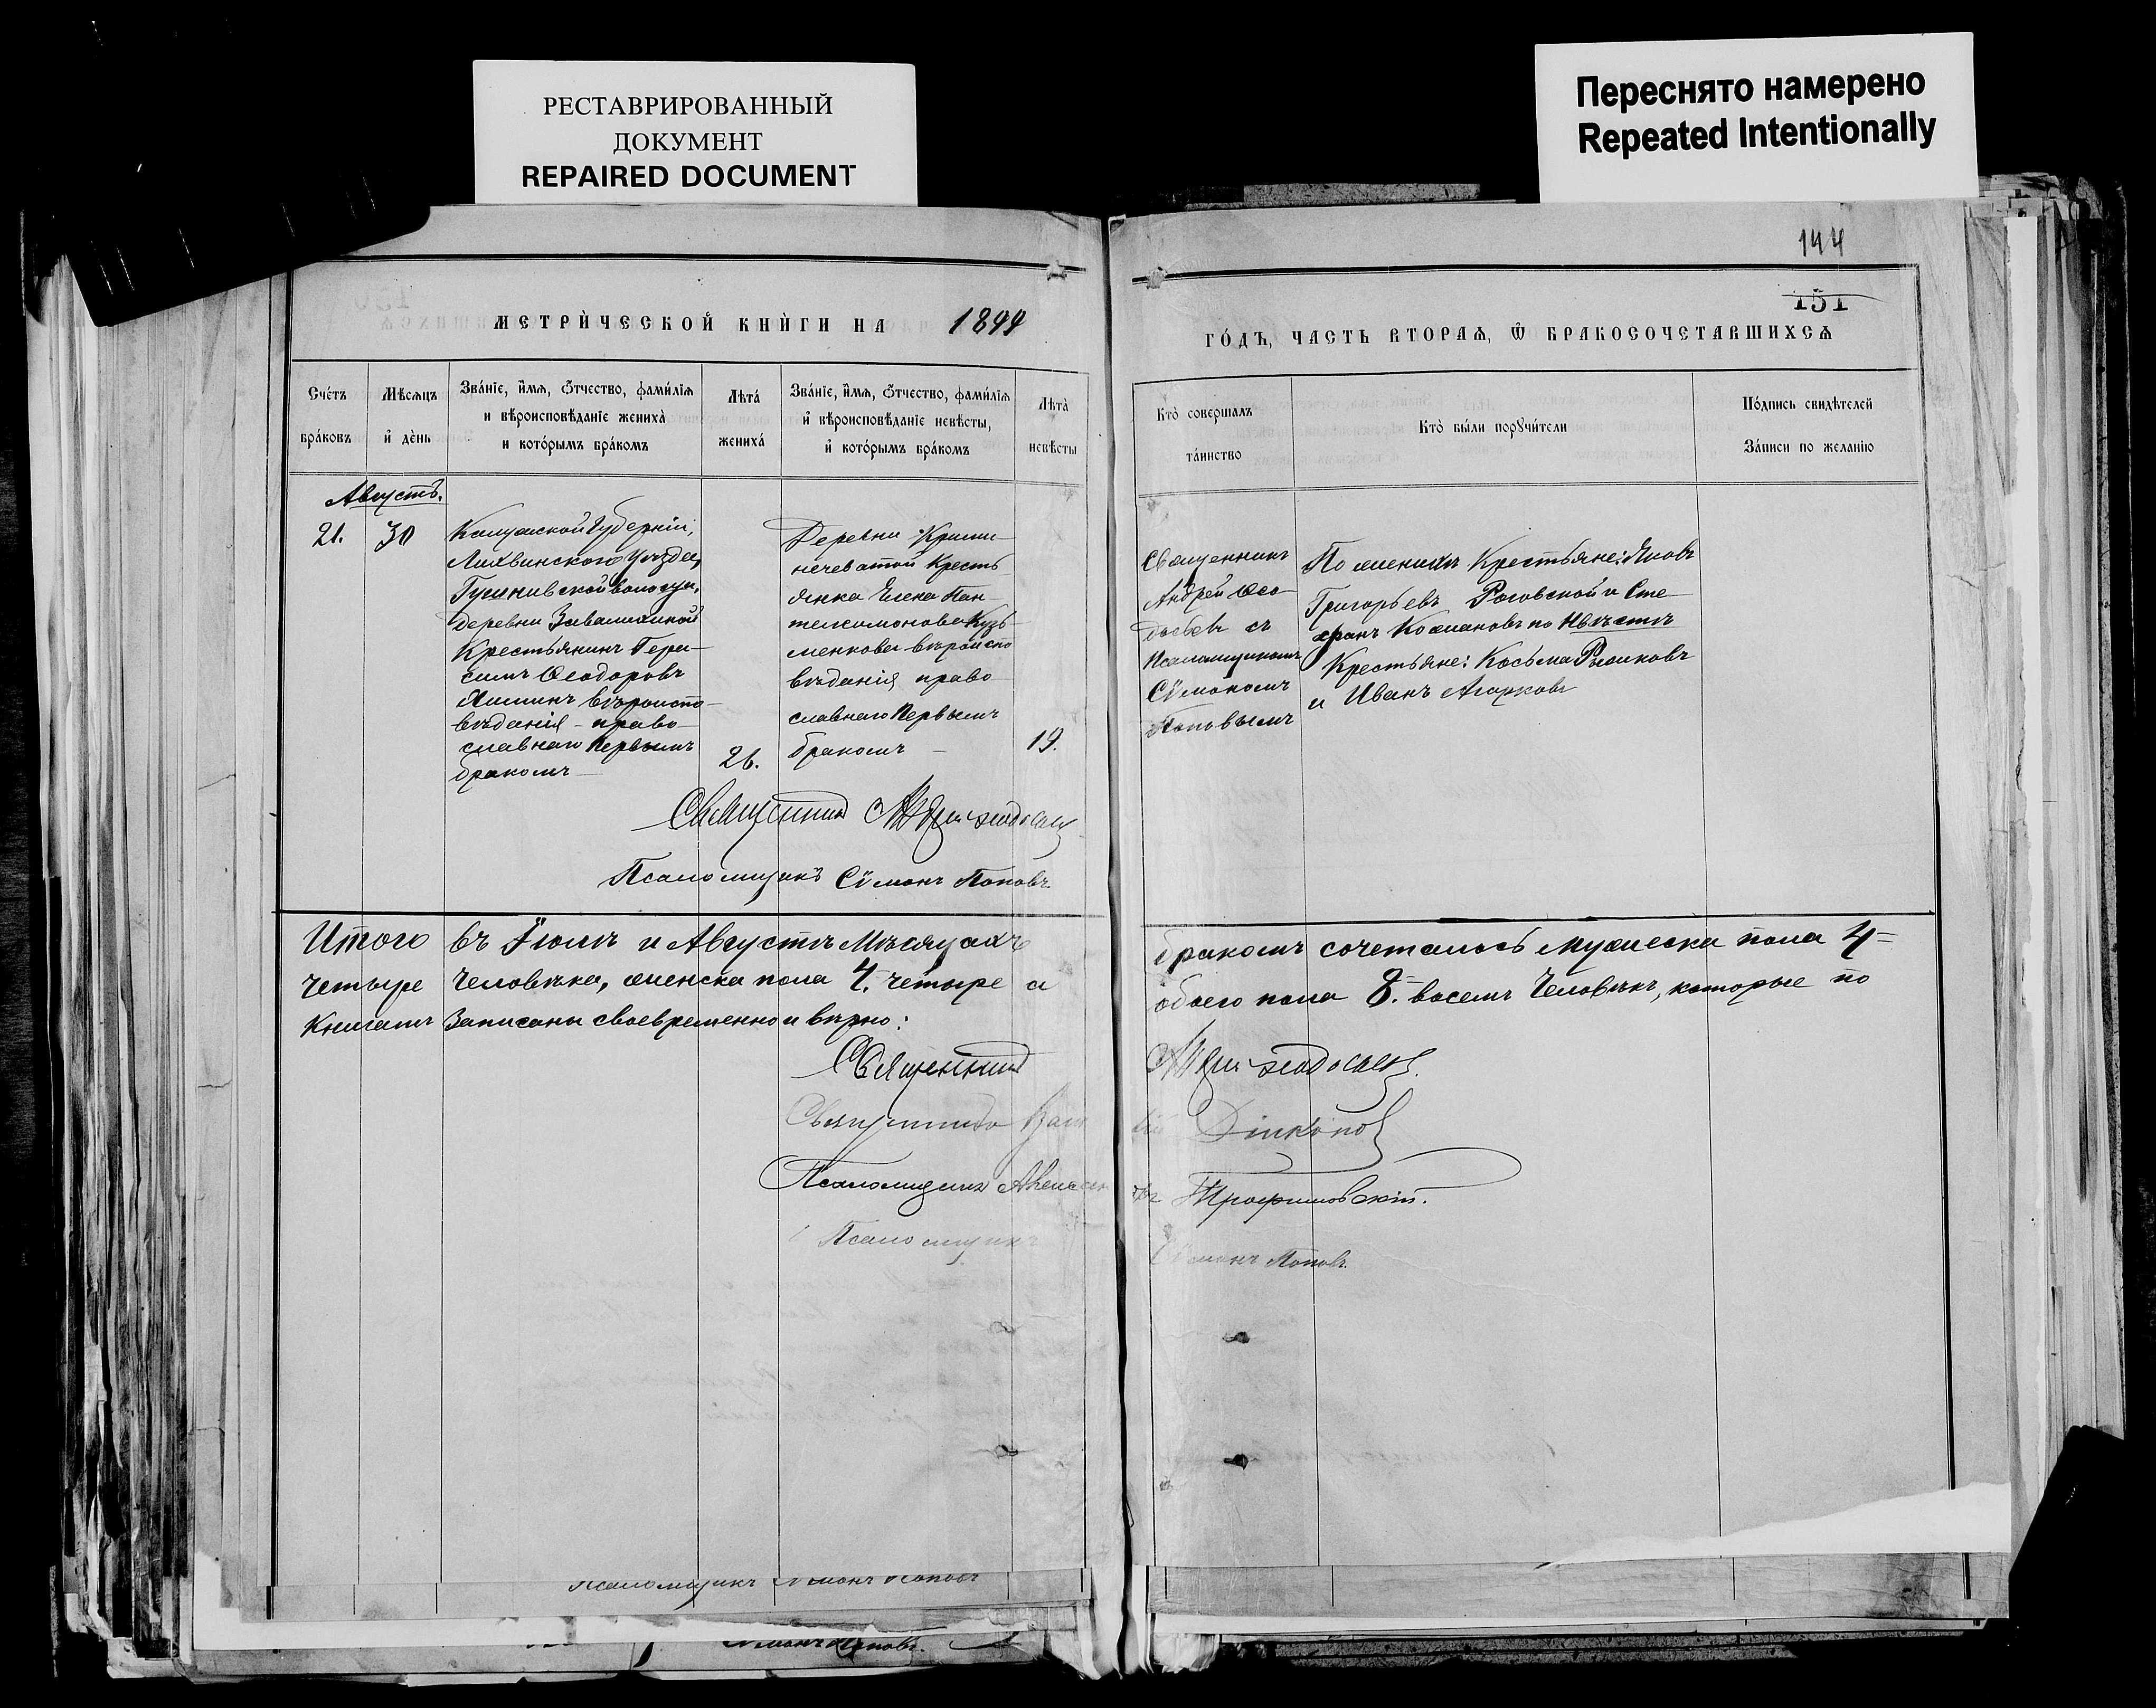 РЕСТАВРИРОВАННЫЙ
ДОКУМЕНТ
REPAIRED DOCUMENT
Переснято намерено
Repeated Intentionally
144
151
МЕТРИ́ЧЕСКОЙ КНИ́ГИ НА 1899
ГО́ДЪ, ЧАСТЬ ВТОРАѦ, Ѿ БРАКОСОЧЕТАВШИХСѦ
Сче́тъ
бра́ковъ
Мѣсѧцъ
и҆ де́нь
Зва́нїе, и҆́мѧ, ѻ҆́тчество, фами́лїѧ
и вѣроисповѣ́данїе жениха̀
и кото́рымъ бра́комъ
Лѣта́
жениха́
Зва́нїе, и҆́мѧ, ѻ҆́тчество, фами́лїѧ
и҆ вѣроисповѣ́данїе невѣ́сты,
и҆ кото́рымъ бра́комъ
Лѣта̀
невѣ́сты
Кто̀ совершалъ
та́инство
Кто̀ бы́ли порꙋчи́тели
По́дпись свидѣ́телей
За́писи по жела́нїю
Августъ.
21.
30
Калужской Губерніи,
Лихвинского Уѣзда,
волости,
деревни
Крестьянинъ Гера-
симъ Ѳеодоровъ
вѣроиспо-
вѣданія - право-
славнаго Первымъ
бракомъ —
26.
Деревни Крини-
чеватой Кресть-
янка Елена Пан-
телеимонова Кузь-
менкова вѣроиспо-
вѣданія право-
славнаго Первымъ
бракомъ —
19.
Священникъ
Андрей Ѳео-
досьевъ съ
Псаломщикомъ
Сѵмономъ
Поповымъ
По женихѣ Крестьяне: Яковъ
Григорьевъ Роговской и Сте-
фанъ по Невѣстѣ
Крестьяне: Косьма
и Иванъ Агарковъ
Священникъ Андрей Ѳеодосьевъ
Псаломщикъ Сѵмонъ Поповъ.
Итого въ Іюлѣ и Августѣ Мѣсяцахъ бракомъ сочеталось мужеска пола 4=
четыре Человѣка, женска пола 4. четыре а обоего пола 8. восемь Человѣкъ, которые по
Книгамъ Записаны своевременно и вѣрно:
Священникъ Андрей Ѳеодосьевъ.
Священникъ
Псаломщикъ Алексѣй Трофимовскій.
Псаломщикъ Сѵмонъ Поповъ.
Псаломщикъ Сѵмонъ Поповъ
Сѵмонъ Поповъ.